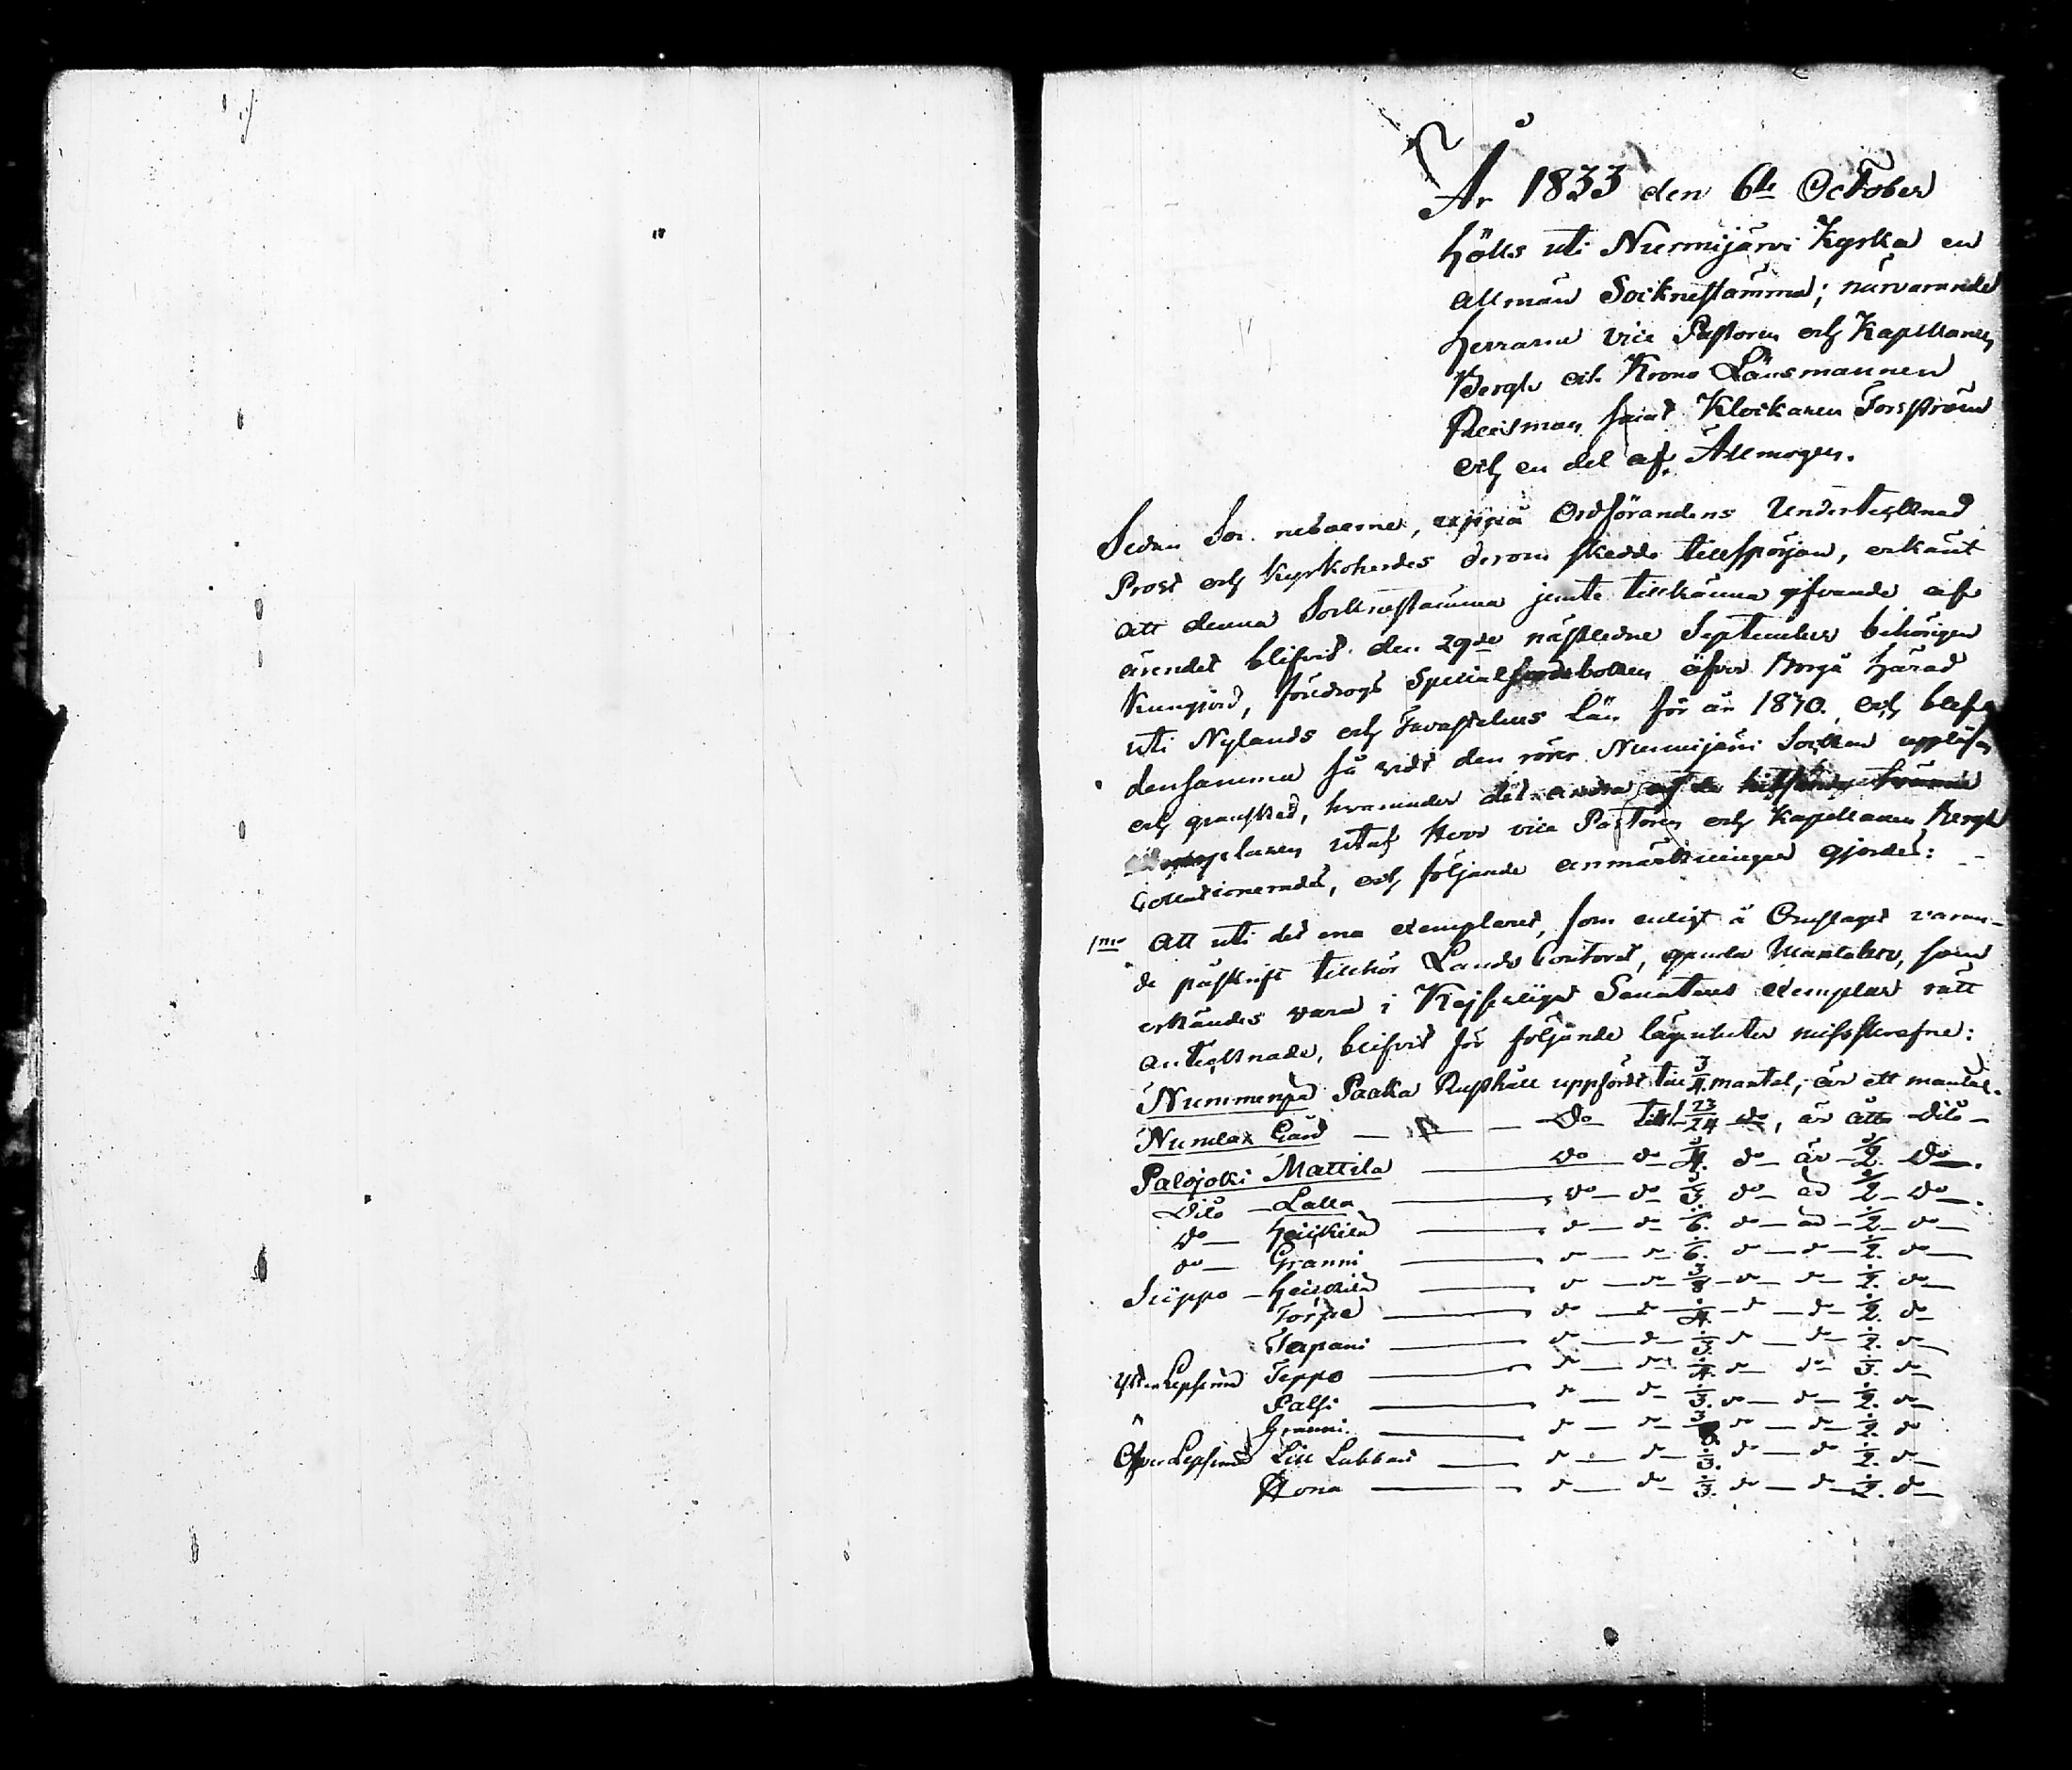 År 1833 den 6te October
hölls uti Nurmijärvi Kyrka en
allmän Socknestämma; närvarande
Herrarne vice Pastorn och Kapellanen
Bergh och Krono Länsmannen
Reisman samt Klockaren Forsström
och en del af Allmogen.
Sedan Soc neboerne, uppå Ordförandens Undertecknad
Prost och Kyrkoherdes derom skedde tillspörjan, erkänt
att denna Socknestämma jemte tillkänna gifvande af
ärendet blifvit den 29de nästledne September behörigen
kungjord, föredrogs Special Jordeboken öfver Borgå Härad
uti Nylands och Tavastehus Län för år 1870. och blef
densamma så vidt den rörer Nurmijärvi Socken uppläsen
och granskad, hvarunder det andra af de
utaf vice Pastorn och Kapellanen Bergh
Collationerades, och följande anmärkningar gjordes:
1mo Att uti det ena exemplaret, som enligt å Omslaget varan-
de påskrift tillhör Lands Contoret, gamla Mantalen, som
erkändes vara i Kejserliga Senatens exemplar rätt
antecknade, blifvit för följande lägenheter misskrefne:
Nummenpä Paaka Rusthåll uppfördt till 3/4 mantal, är ett mantal.
Numlax Gård — — Do till 23/24 do, är åtta dito
Palojoki Mattila — do do 3/4. do är 1/2. do.
Dito Lalla — do do 1/3. do 1/2 do.
do Heikkilä — do do 1/6. do 1/2 do
do Granni — do do 1/6. do do 1/2. do
Siippo Heikkilä — do do 3/8 do do 1/2. do
Torpe — do do 1/4. do do 1/2. do
Tapani — do do 1/3. do do 1/2. do
Ytter Lepsemä Teppo — do do 1/4. do do 1/3. do
Palsi — do do 1/3. do do 1/2. do
Granni — do do do do 1/2. do
Öfver Lepsemä Lill Labbas — do do 1/3. do do 1/2. do
— do do 1/3. do do 1/2. do